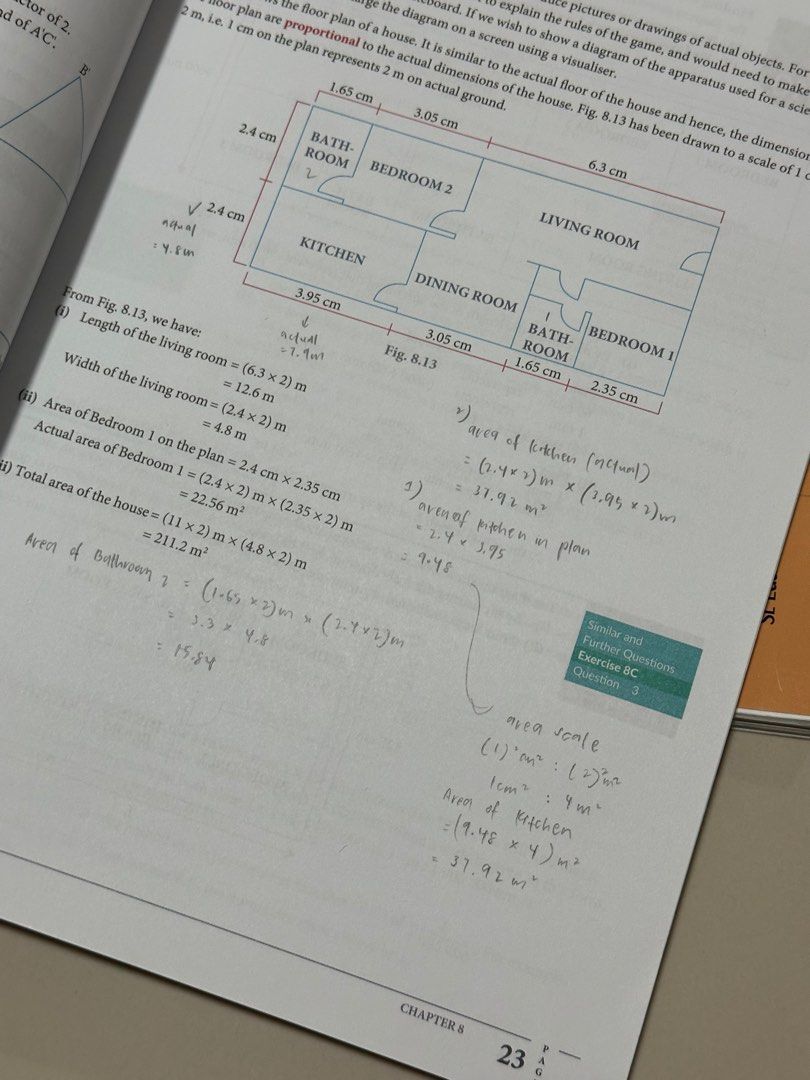 ctor of 2.
nd of A'C'.
B'
uce pictures or drawings of actual objects. For
to explain the rules of the game, and would need to make
board. If we wish to show a diagram of the apparatus used for a scie
ge the diagram on a screen using a visualiser.
ws the floor plan of a house. It is similar to the actual floor of the house and hence, the dimension
floor plan are proportional to the actual dimensions of the house. Fig. 8.13 has been drawn to a scale of 1 c
2 m, i.e. 1 cm on the plan represents 2 m on actual ground.
1.65 cm
3.05 cm
6.3 cm
2.4 cm
2.4 cm
BATH-
ROOM
2
BEDROOM 2
LIVING ROOM
KITCHEN
DINING ROOM
1
BATH-
ROOM
BEDROOM 1
3.95 cm
3.05 cm
1.65 cm
2.35 cm
Fig. 8.13
actual
= 4.8m
actual
= 7.9m
From Fig. 8.13, we have:
(i) Length of the living room = (6.3 × 2) m
= 12.6 m
Width of the living room = (2.4 × 2) m
= 4.8 m
(ii) Area of Bedroom 1 on the plan = 2.4 cm × 2.35 cm
Actual area of Bedroom 1 = (2.4 × 2) m × (2.35 × 2) m
= 22.56 m²
ii) Total area of the house = (11 × 2) m × (4.8 × 2) m
= 211.2 m²
Area of Bathroom 2 = (1.65 × 2)m × (2.4×2)m
= 3.3 × 4.8
= 15.84
2)
area of kitchen (actual)
= (2.4 × 2)m × (3.95 × 2)m
= 37.92 m²
1)
area of kitchen in plan
= 2.4 × 3.95
= 9.48
Similar and
Further Questions
Exercise 8C
Question 3
area scale
(1)² cm² : (2)² m²
1cm² : 4m²
Area of kitchen
= (9.48 × 4) m²
= 37.92 m²
CHAPTER 8
23
P
A
G